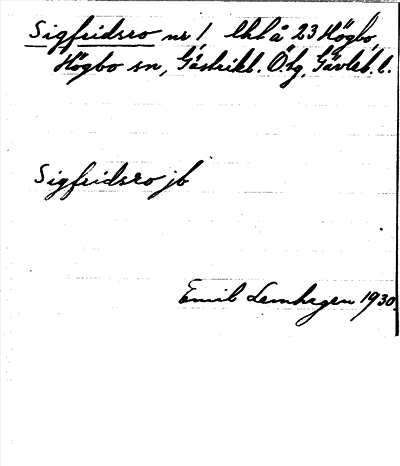 Sigfridsro nr 1 lht å 23 Högbo,
Högbo sn, Gästrikl. Ö. tg, Gävleb. l.
Sigfridsro jb
Emil Lemhagen 1930.